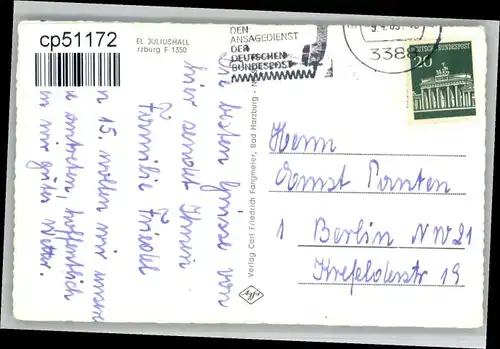 cp51172
EL JULIUSHALL
rzburg F 1350
DEN
ANSAGEDIENST
DER
DEUTSCHEN
BUNDESPOST
9.4.69
3388
DEUTSCHE BUNDESPOST
20
Die besten Grüsse von
hier sendet Ihnen
Familie Friedel
m 15. wollen wir unsere
antreten, hoffentlich
wir gutes Wetter.
Verlag Carl Friedrich Fangmeier, Bad Harzburg
Agfa
Herrn
Ernst Panten
1 Berlin NW 21
Krefelderstr 19